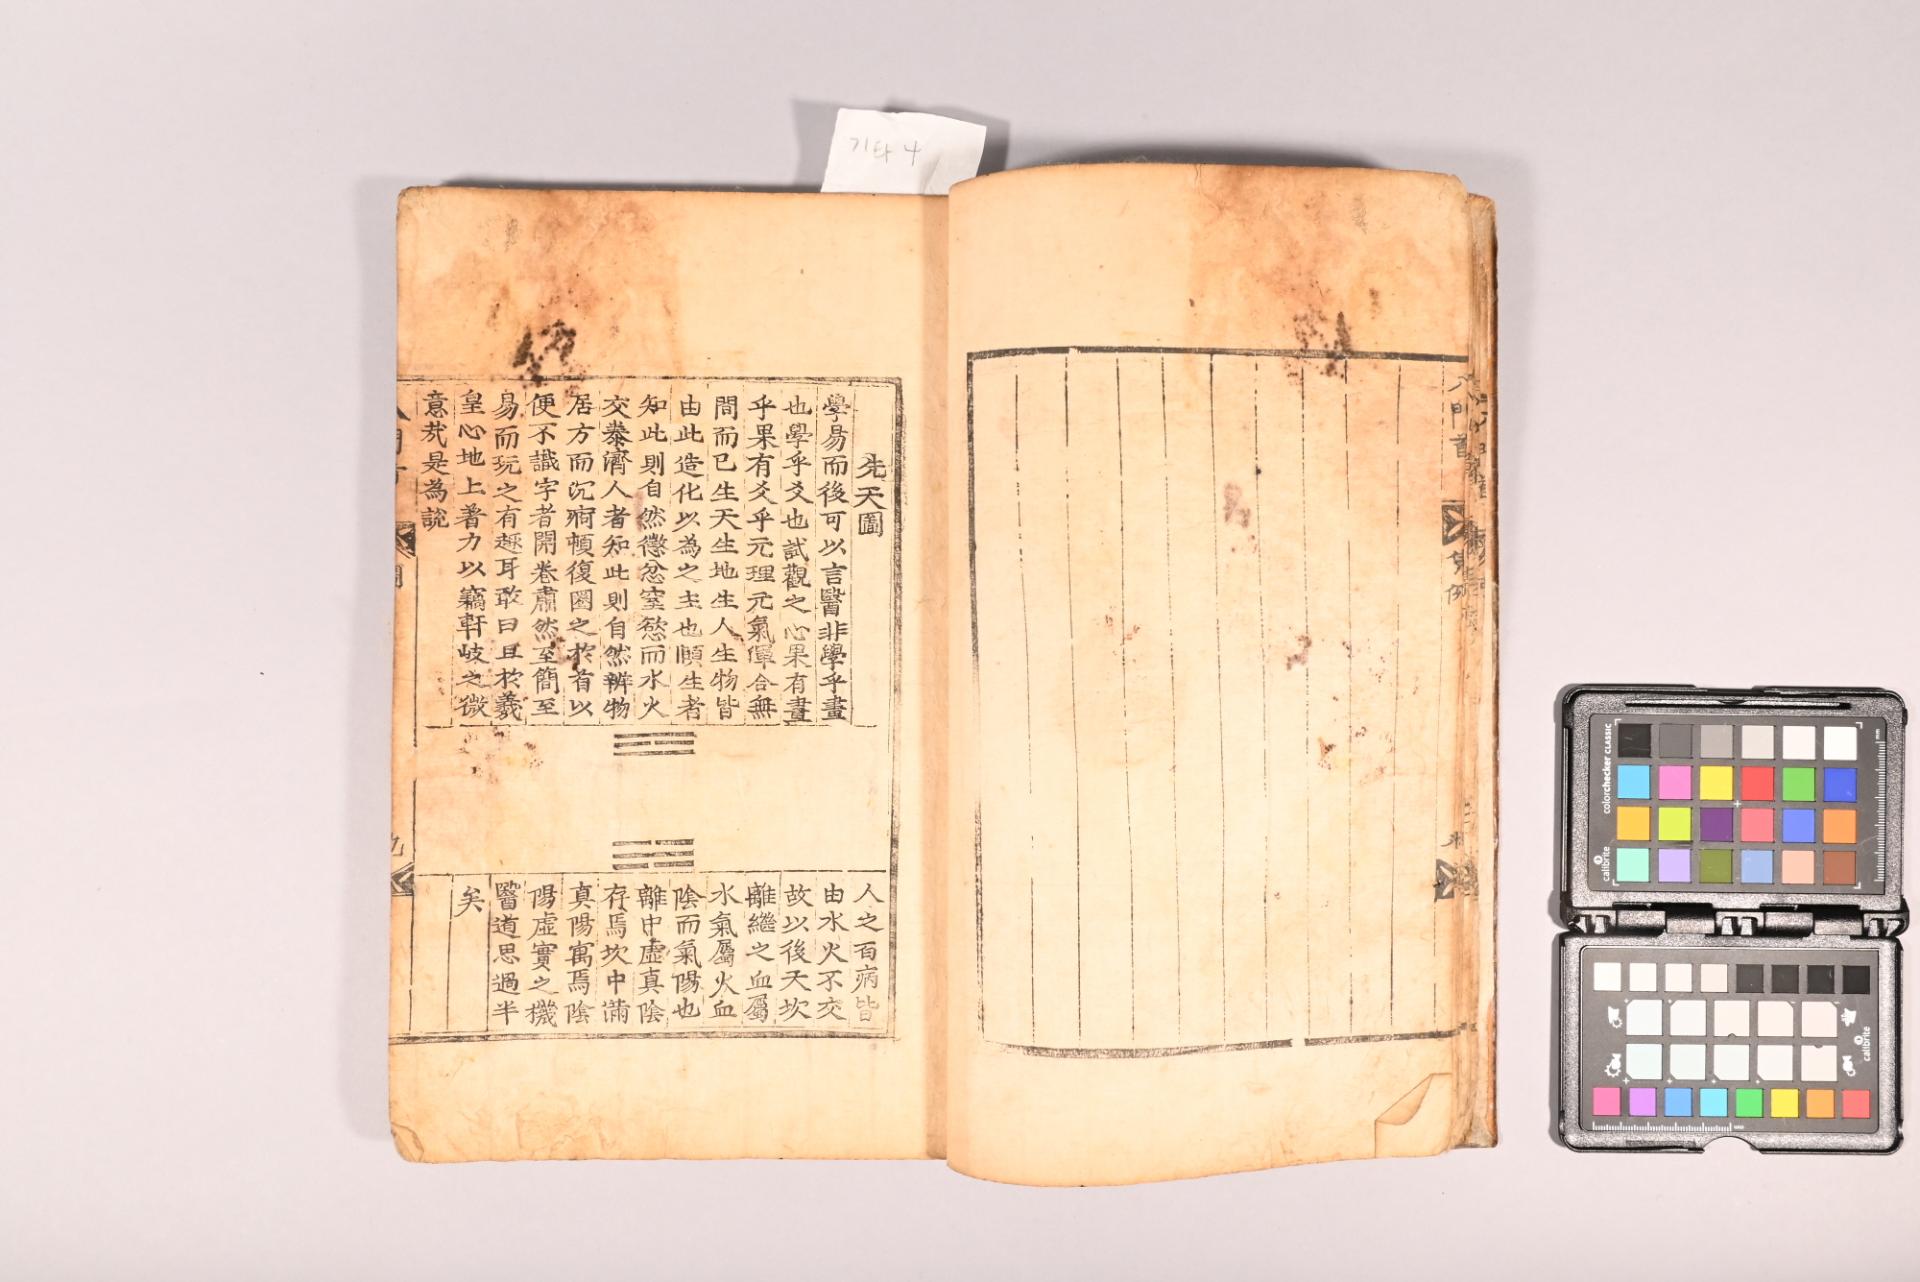 기타 4
先天圖
學易而後可以言醫非學乎畫
也學乎爻也試觀之心果有畫
乎果有爻乎元理元氣渾合無
間而已生天生地生人生物皆
由此造化以為之主也頤生者
知此則自然懲忿窒慾而水火
交泰濟人者知此則自然辨物
居方而沉痾頓復圈之於首以
便不識字者開卷肅然至簡至
易而玩之有趣耳敢曰且於羲
皇心地上著力以竊軒岐之微
意㢤是為說
人之百病皆
由水火不交
故以後天坎
離繼之血屬
水氣屬火血
陰而氣陽也
離中虛真陰
存焉坎中滿
真陽寓焉陰
陽虛實之機
醫道思過半
矣
九
八門首
集例
colorchecker CLASSIC
calibrite
calibrite